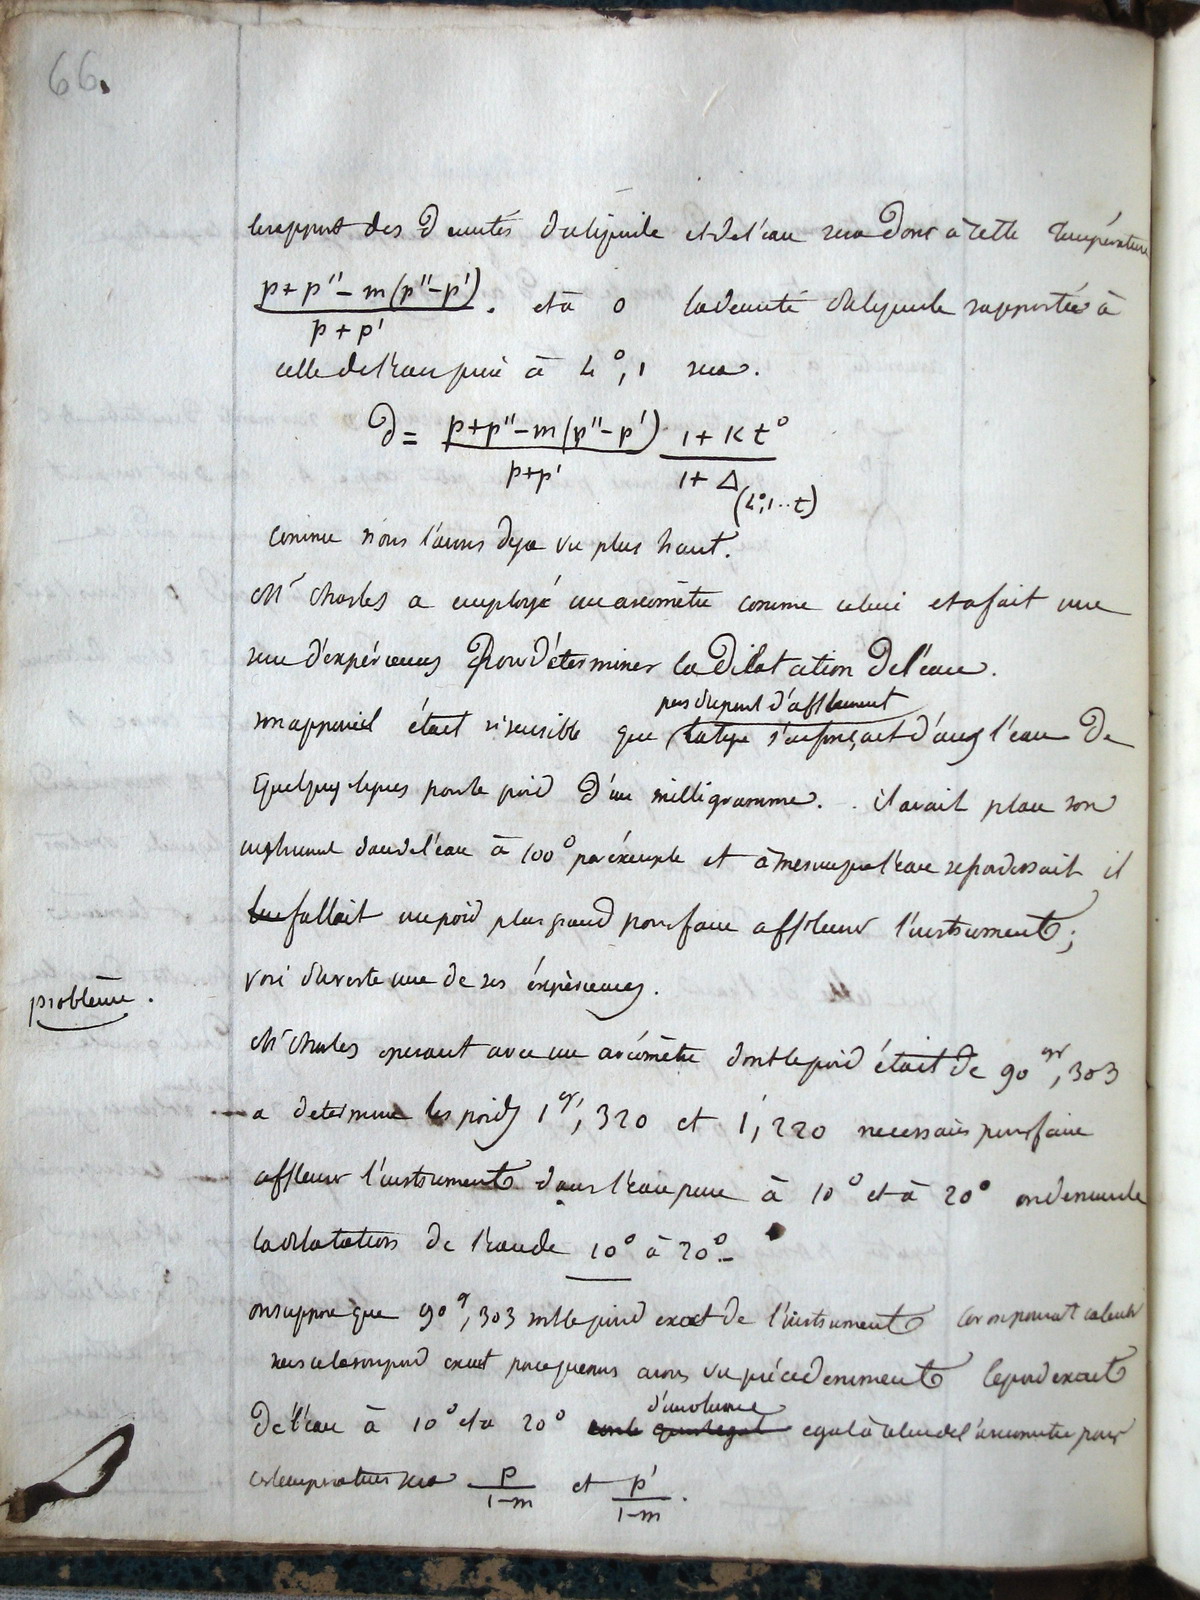 66.
le rapport des densités du liquide et de l'eau sera donc à cette température
p + p'' - m(p'' - p') / p + p' . et à 0 la densité du liquide rapportée à
celle de l'eau pure à 4°,1 sera.
D = p+p''-m(p''-p') / p+p' 1 + Kt° / 1 + Δ (4°,1..t)
comme nous l'avons deja vu plus haut.
Mr Charles a employé un areomètre comme celui et a fait une
suite d'expériences Pour Déterminer la Dilatation De l'eau.
pres du point d'affleurment
son appareil était si sensible que la tige s'enfonçait d'ans l'eau De
Quelques lignes pour le poid D'un milligramme. il avait placé son
instrument dans de l'eau à 100° par éxemple et à mesure que l'eau se froidissait il
fallait un poid plus grand pour faire affleurer l'instrument;
voici du reste une de ses éxpériences.
problême.
Mr Charles operant avec un aréomètre dont le poid était de 90gr,303
a determiné les poids 1gr,320 et 1,220 necessaires pour faire
affleurer l'instrument dans l'eau pure à 10° et à 20° on demande
la dilatation de l'eau de 10° à 20°.
on suppose que 90g,303 est le poid exact de l'instrument car on pourrait calculer
son poid exact parceque nous avons vu précédemment le poid exact
d'un volume
De l'eau à 10° et a 20° egal à celui de l'areometre pour
ces temperatures sera p / 1-m et p' / 1-m .